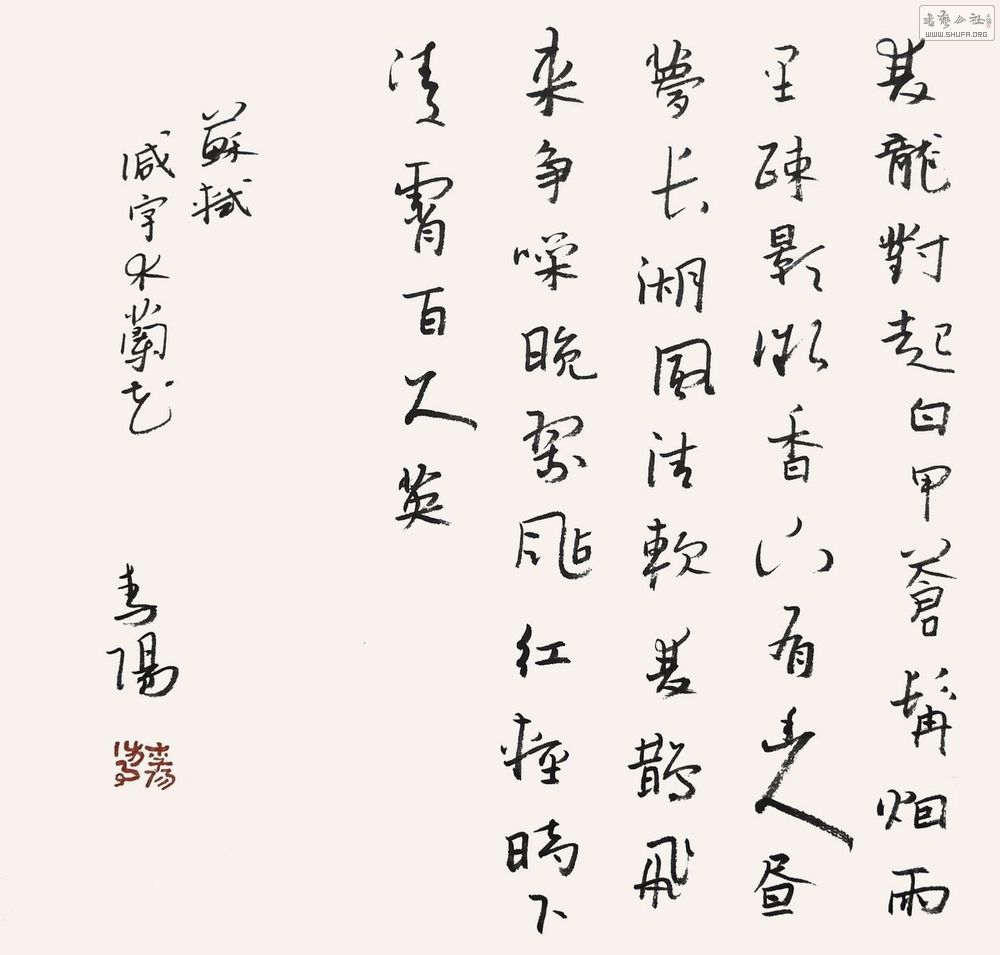 雙龍對起白甲蒼髯烟雨
里疎影微香下有幽人晝
夢長湖風清軟雙鵲飛
來爭噪晚翠颭紅輕時下
淩霄百尺英
蘇軾
減字木蘭花
書藝公社
WWW.SHUFA.ORG